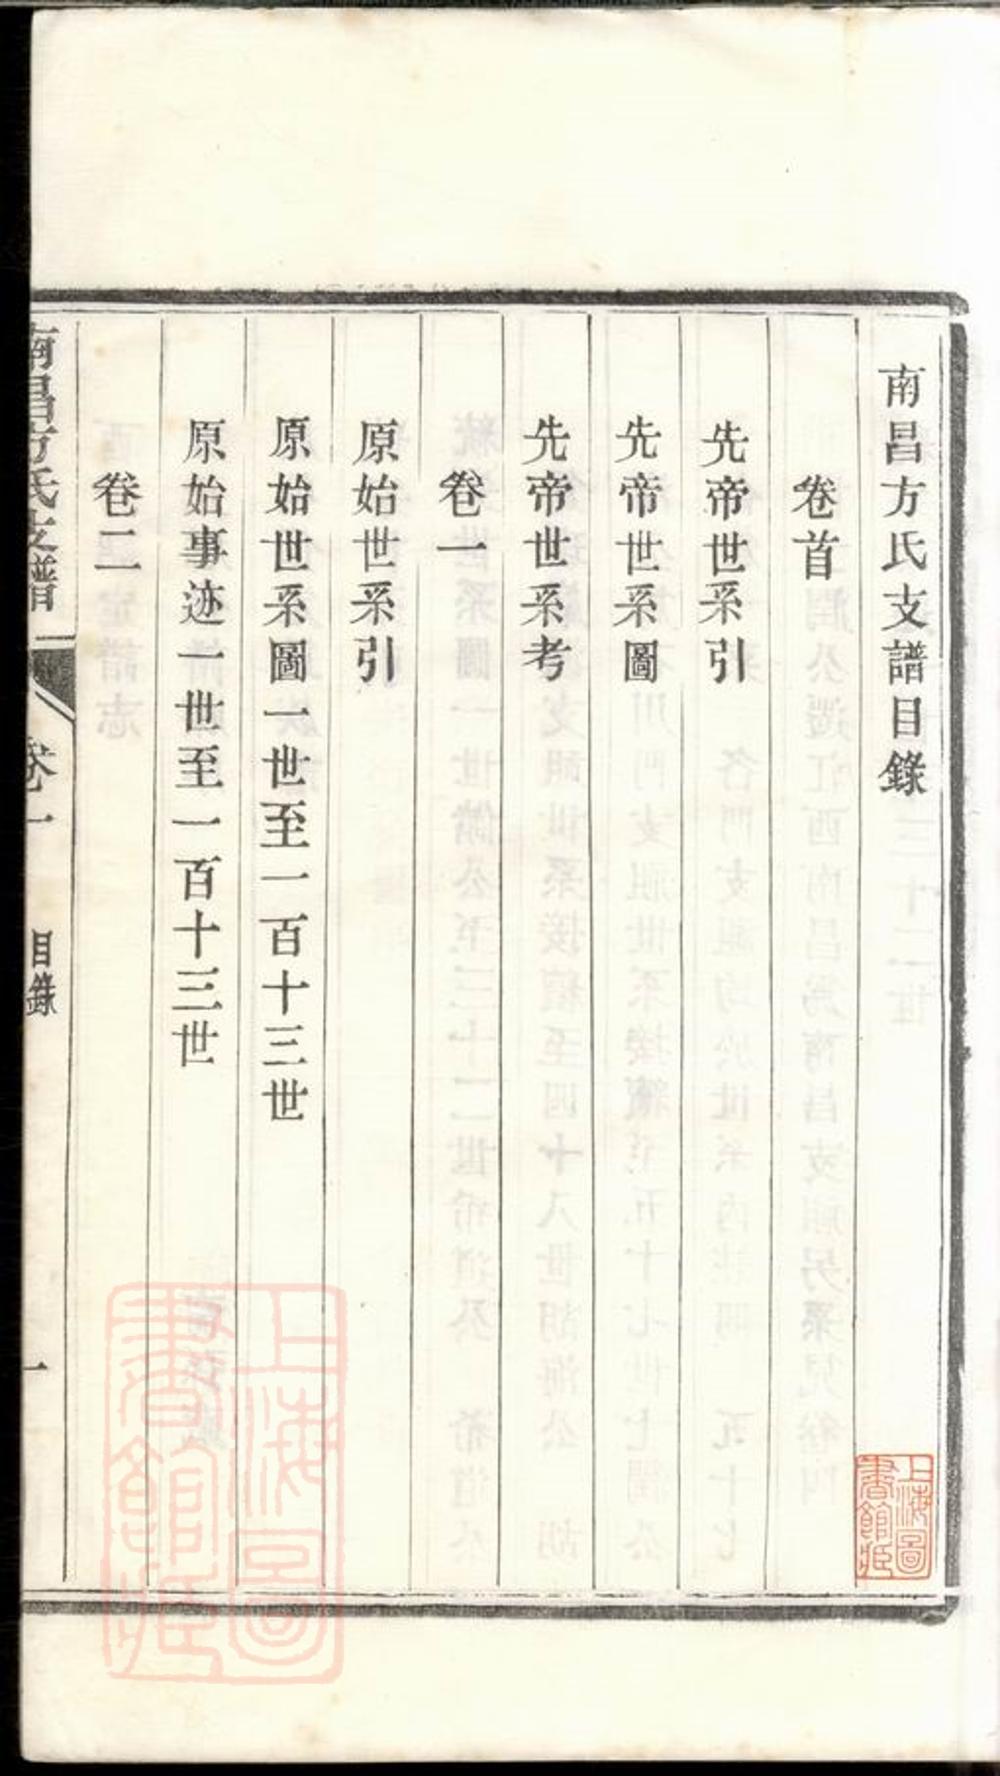 南昌方氏支譜目錄
卷首
先帝世系引
先帝世系圖
先帝世系考
卷一
原始世系引
原始世系圖一世至一百十三世
原始事迹一世至一百十三世
卷二
南昌方氏支譜
卷一
目錄
一
上海圖書館藏
上海圖書館藏